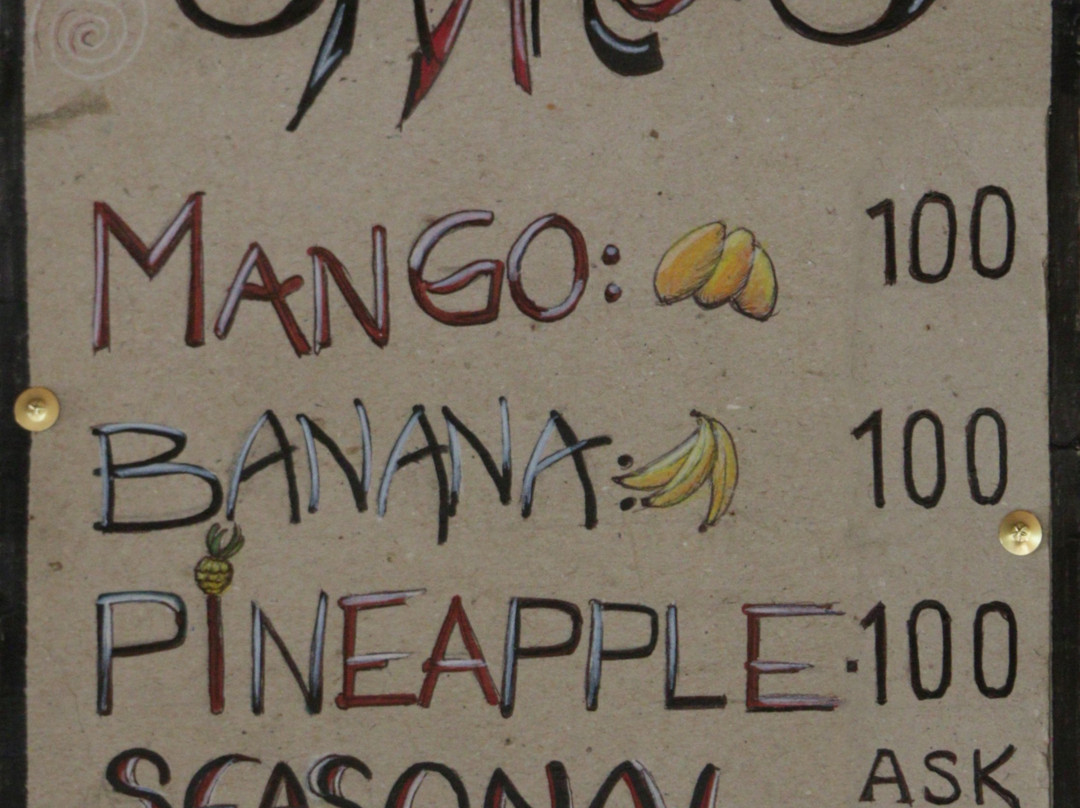 MANGO: 100
BANANA: 100
PINEAPPLE· 100
SEASONAL ASK